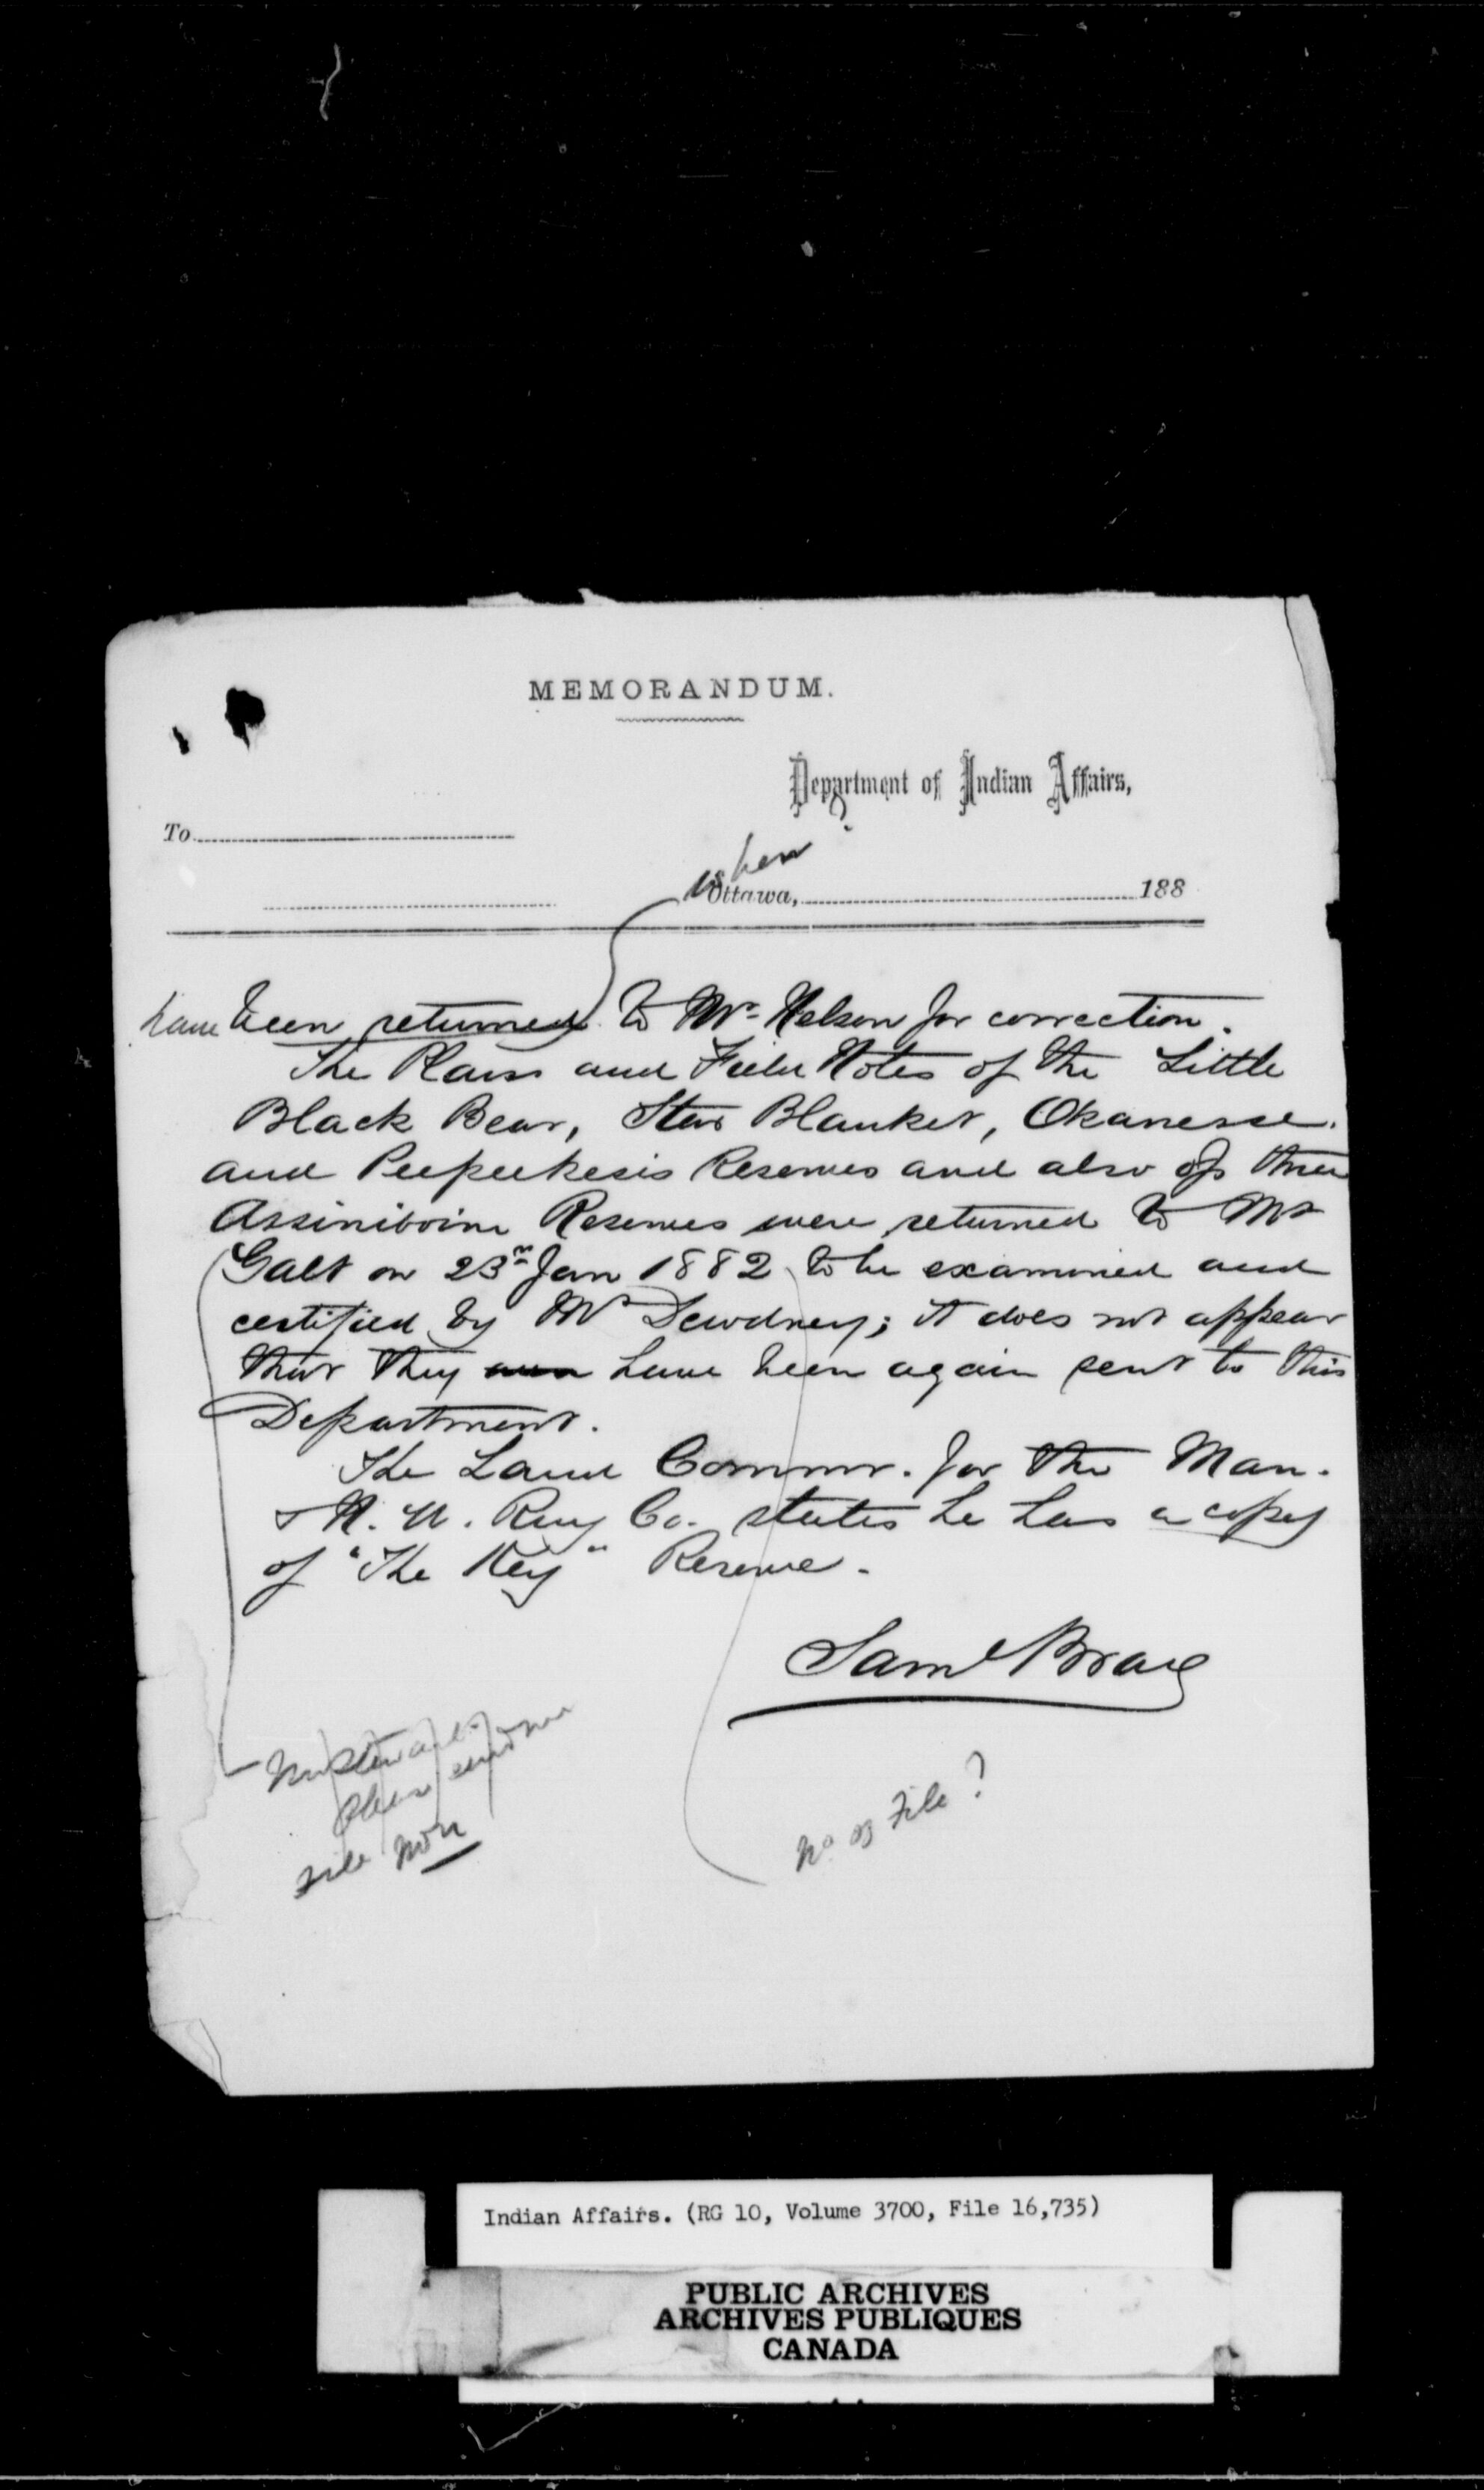 MEMORANDUM.
Department of Indian Affairs,
To
when ?
Ottawa, 188
have been returned to Mr. Nelson for correction.
The Plans and Field Notes of the Little
Black Bear, Star Blanket, Okanesse.
and Peepeekesis Reserves and also of three
Assiniboine Reserves were returned to Mr
Galt on 23rd Jan 1882 to be examined and
certified by Mr Dewdney; it does not appear
that they have been again sent to this
Department.
The Land Commr. for the Man.
& N. W. Rwy Co. states he has a copy
of "The Key" Reserve.
Saml Bray
Mr Stewart
Please send me
file now
No of File?
Indian Affairs. (RG 10, Volume 3700, File 16,735)
PUBLIC ARCHIVES
ARCHIVES PUBLIQUES
CANADA